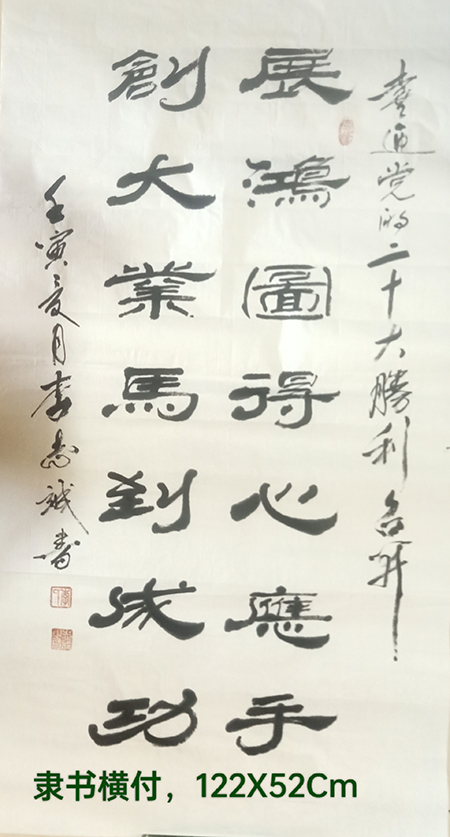 喜迎党的二十大勝利召开
展鴻圖得心應手
創大業馬到成功
壬寅夏月李志誠書
隶书横付，122X52Cm